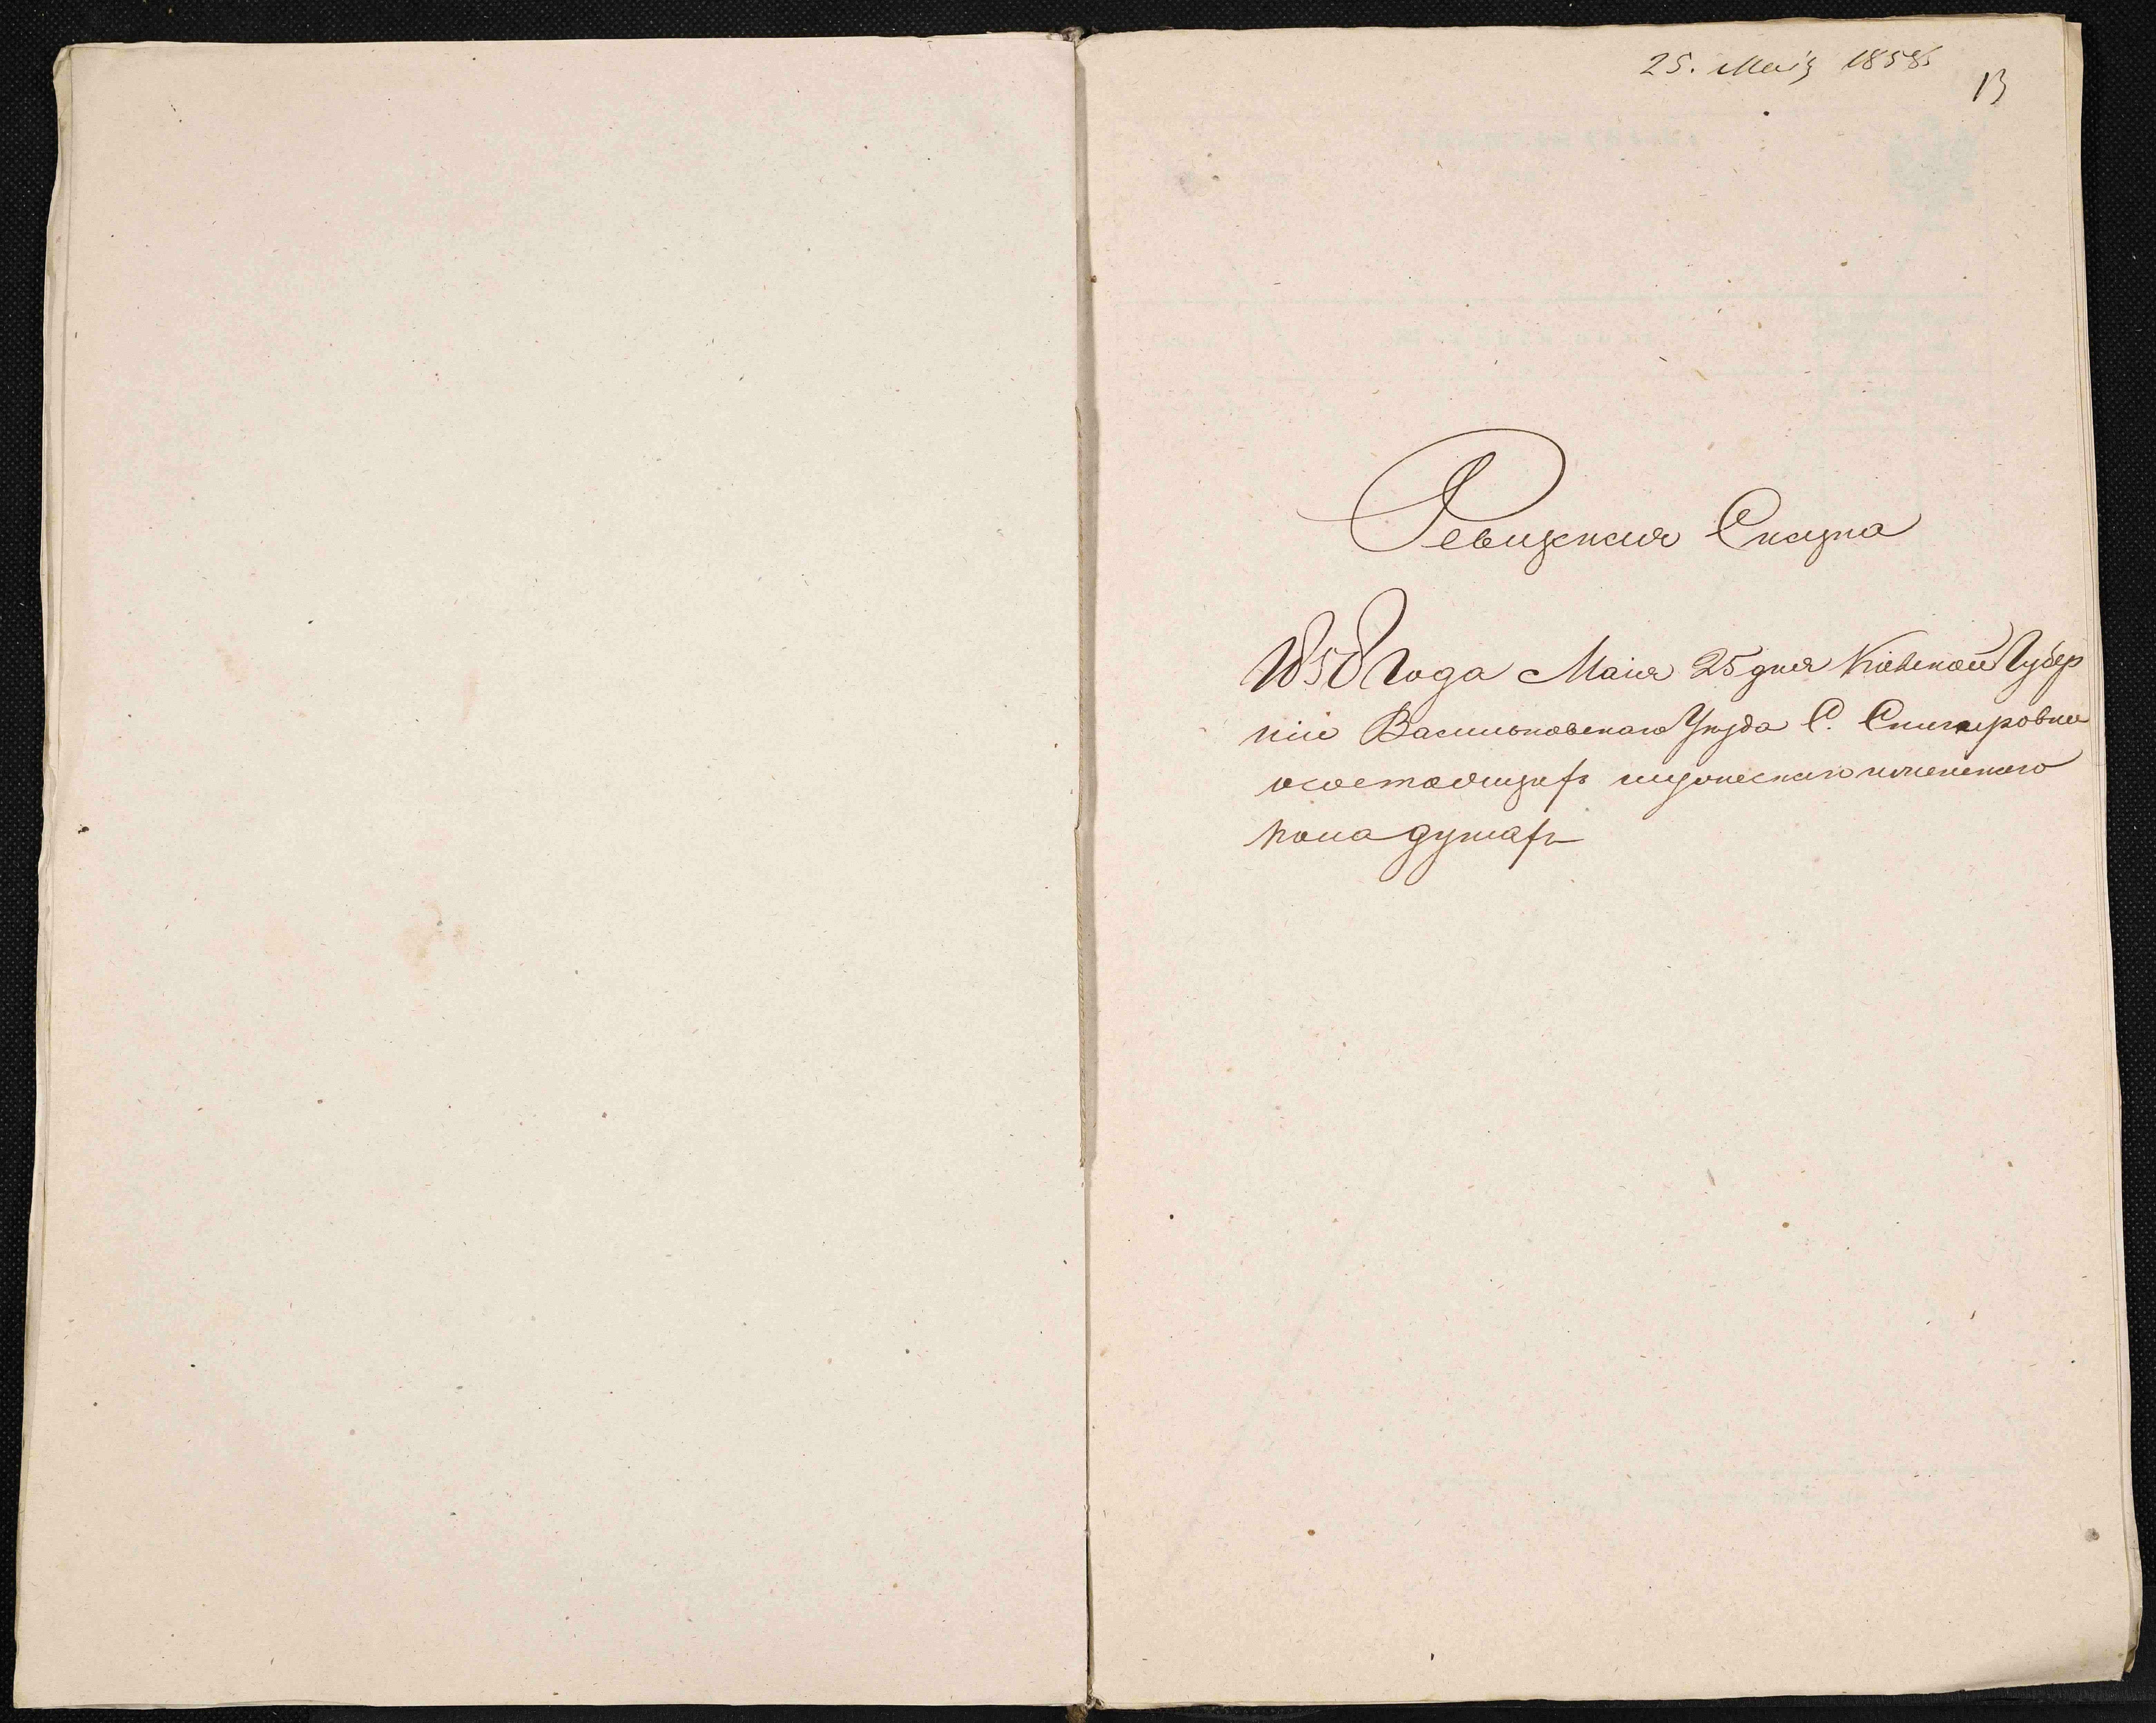 25. Мая 1858
13
Ревизская Сказка
1858 года Маія 25 дня Кіевской Губер
ніи Васильковскаго Уезда С. Снигуровки
о состоящихъ мужескаго и женскаго
пола душахъ